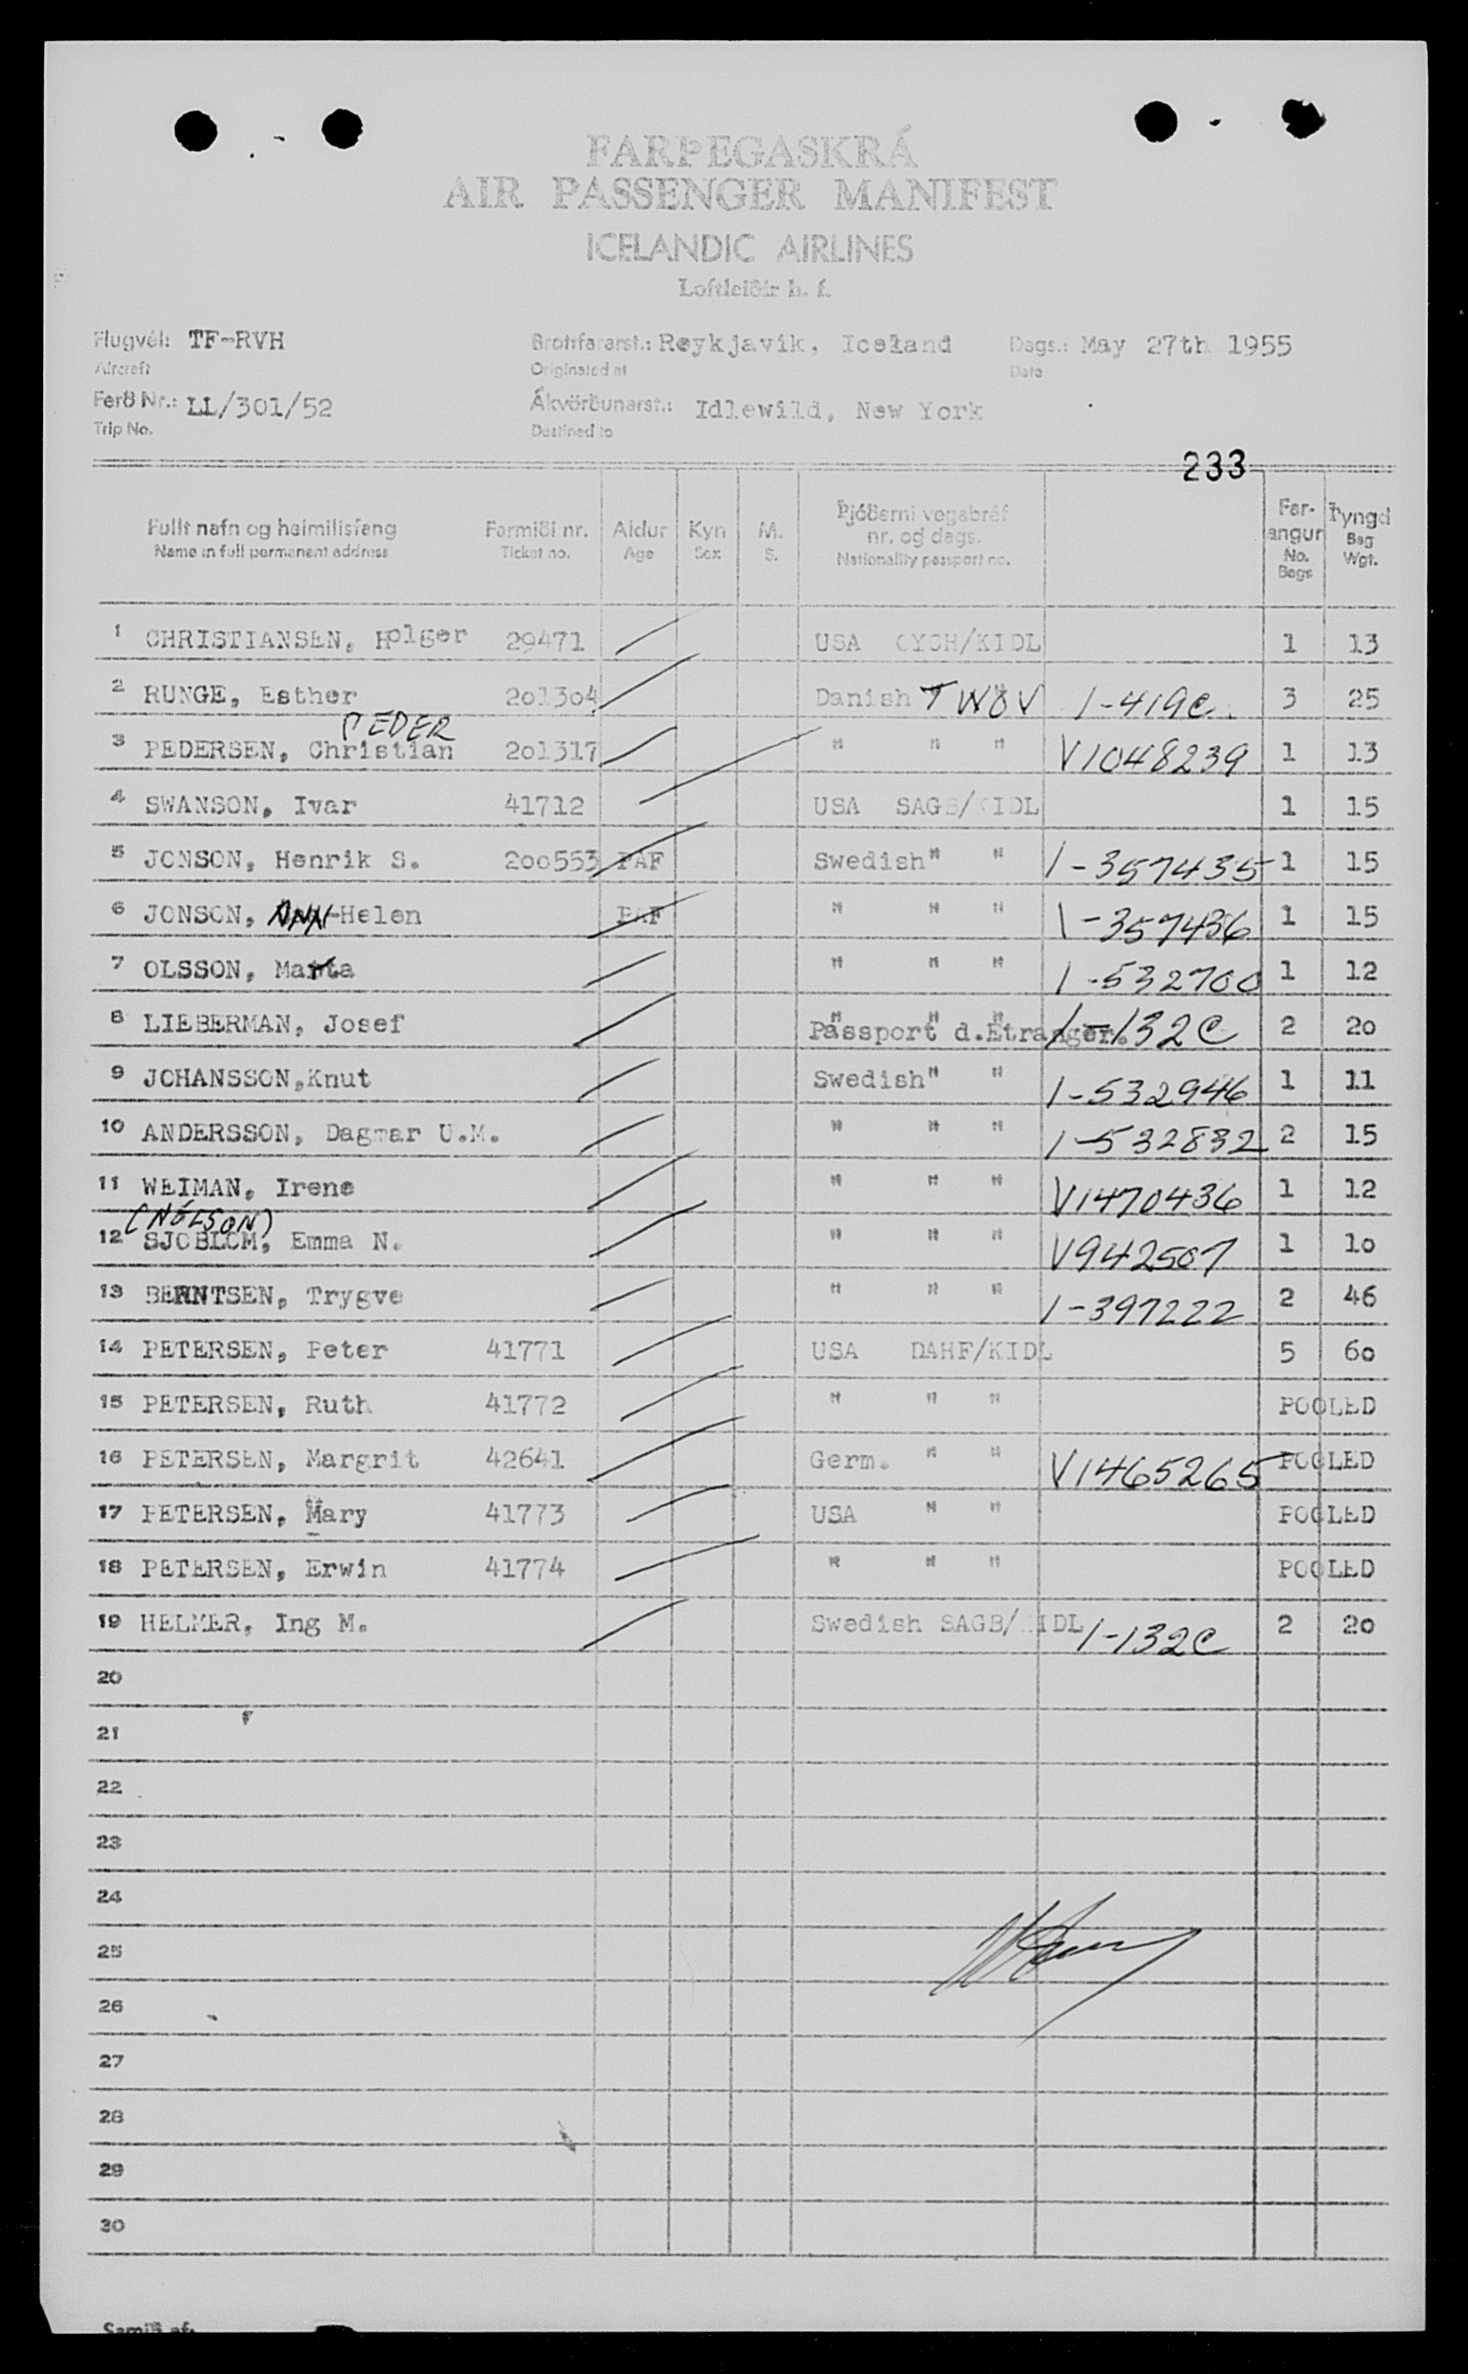 FARÞEGASKRÁ
AIR PASSENGER MANIFEST
ICELANDIC AIRLINES
Loftleiðir h. f.
Flugvél: TF-RVH Brottfararst.: Reykjavik, Iceland Dags.: May 27th 1955
Aircraft Originated at Date
Ferð Nr.: LL/301/52 Ákvörðunarst.: Idlewild, New York
Trip No. Destined to
233
Fullt nafn og heimilisfang Farmiði nr. Aldur Kyn M. Þjóðerni vegabréf nr. og dags. Farangur Þyngd
Name in full permanent address Ticket no. Age Sex S. Nationality passport no. No. Bags Bag Wgt.
1 CHRISTIANSEN, Holger 29471 USA CYCH/KIDL 1 13
2 RUNGE, Esther 201304 Danish TWOV 1-419C. 3 25
PEDER
3 PEDERSEN, Christian 201317 " " " V1048239 1 13
4 SWANSON, Ivar 41712 USA SAGB/KIDL 1 15
5 JONSON, Henrik S. 200553 PAF Swedish " " 1-357435 1 15
6 JONSON, ANN-Helen PAF " " " 1-357436 1 15
7 OLSSON, Marta " " " 1-532700 1 12
8 LIEBERMAN, Josef " " " Passport d.Etranger. 1-132C 2 20
9 JOHANSSON,Knut Swedish " " 1-532946 1 11
10 ANDERSSON, Dagmar U.M. " " " 1-532832 2 15
11 WEIMAN, Irene " " " V1470436 1 12
(NELSON)
12 SJOBLOM, Emma N. " " " V942507 1 10
13 BERNTSEN, Trygve " " " 1-397222 2 46
14 PETERSEN, Peter 41771 USA DAHF/KIDL 5 60
15 PETERSEN, Ruth 41772 " " " POOLED
16 PETERSEN, Margrit 42641 Germ. " " V1465265 POOLED
17 PETERSEN, Mary 41773 USA " " POOLED
18 PETERSEN, Erwin 41774 " " " POOLED
19 HELMER, Ing M. Swedish SAGB/KIDL 1-132C 2 20
20
21
22
23
24
25
26
27
28
29
30